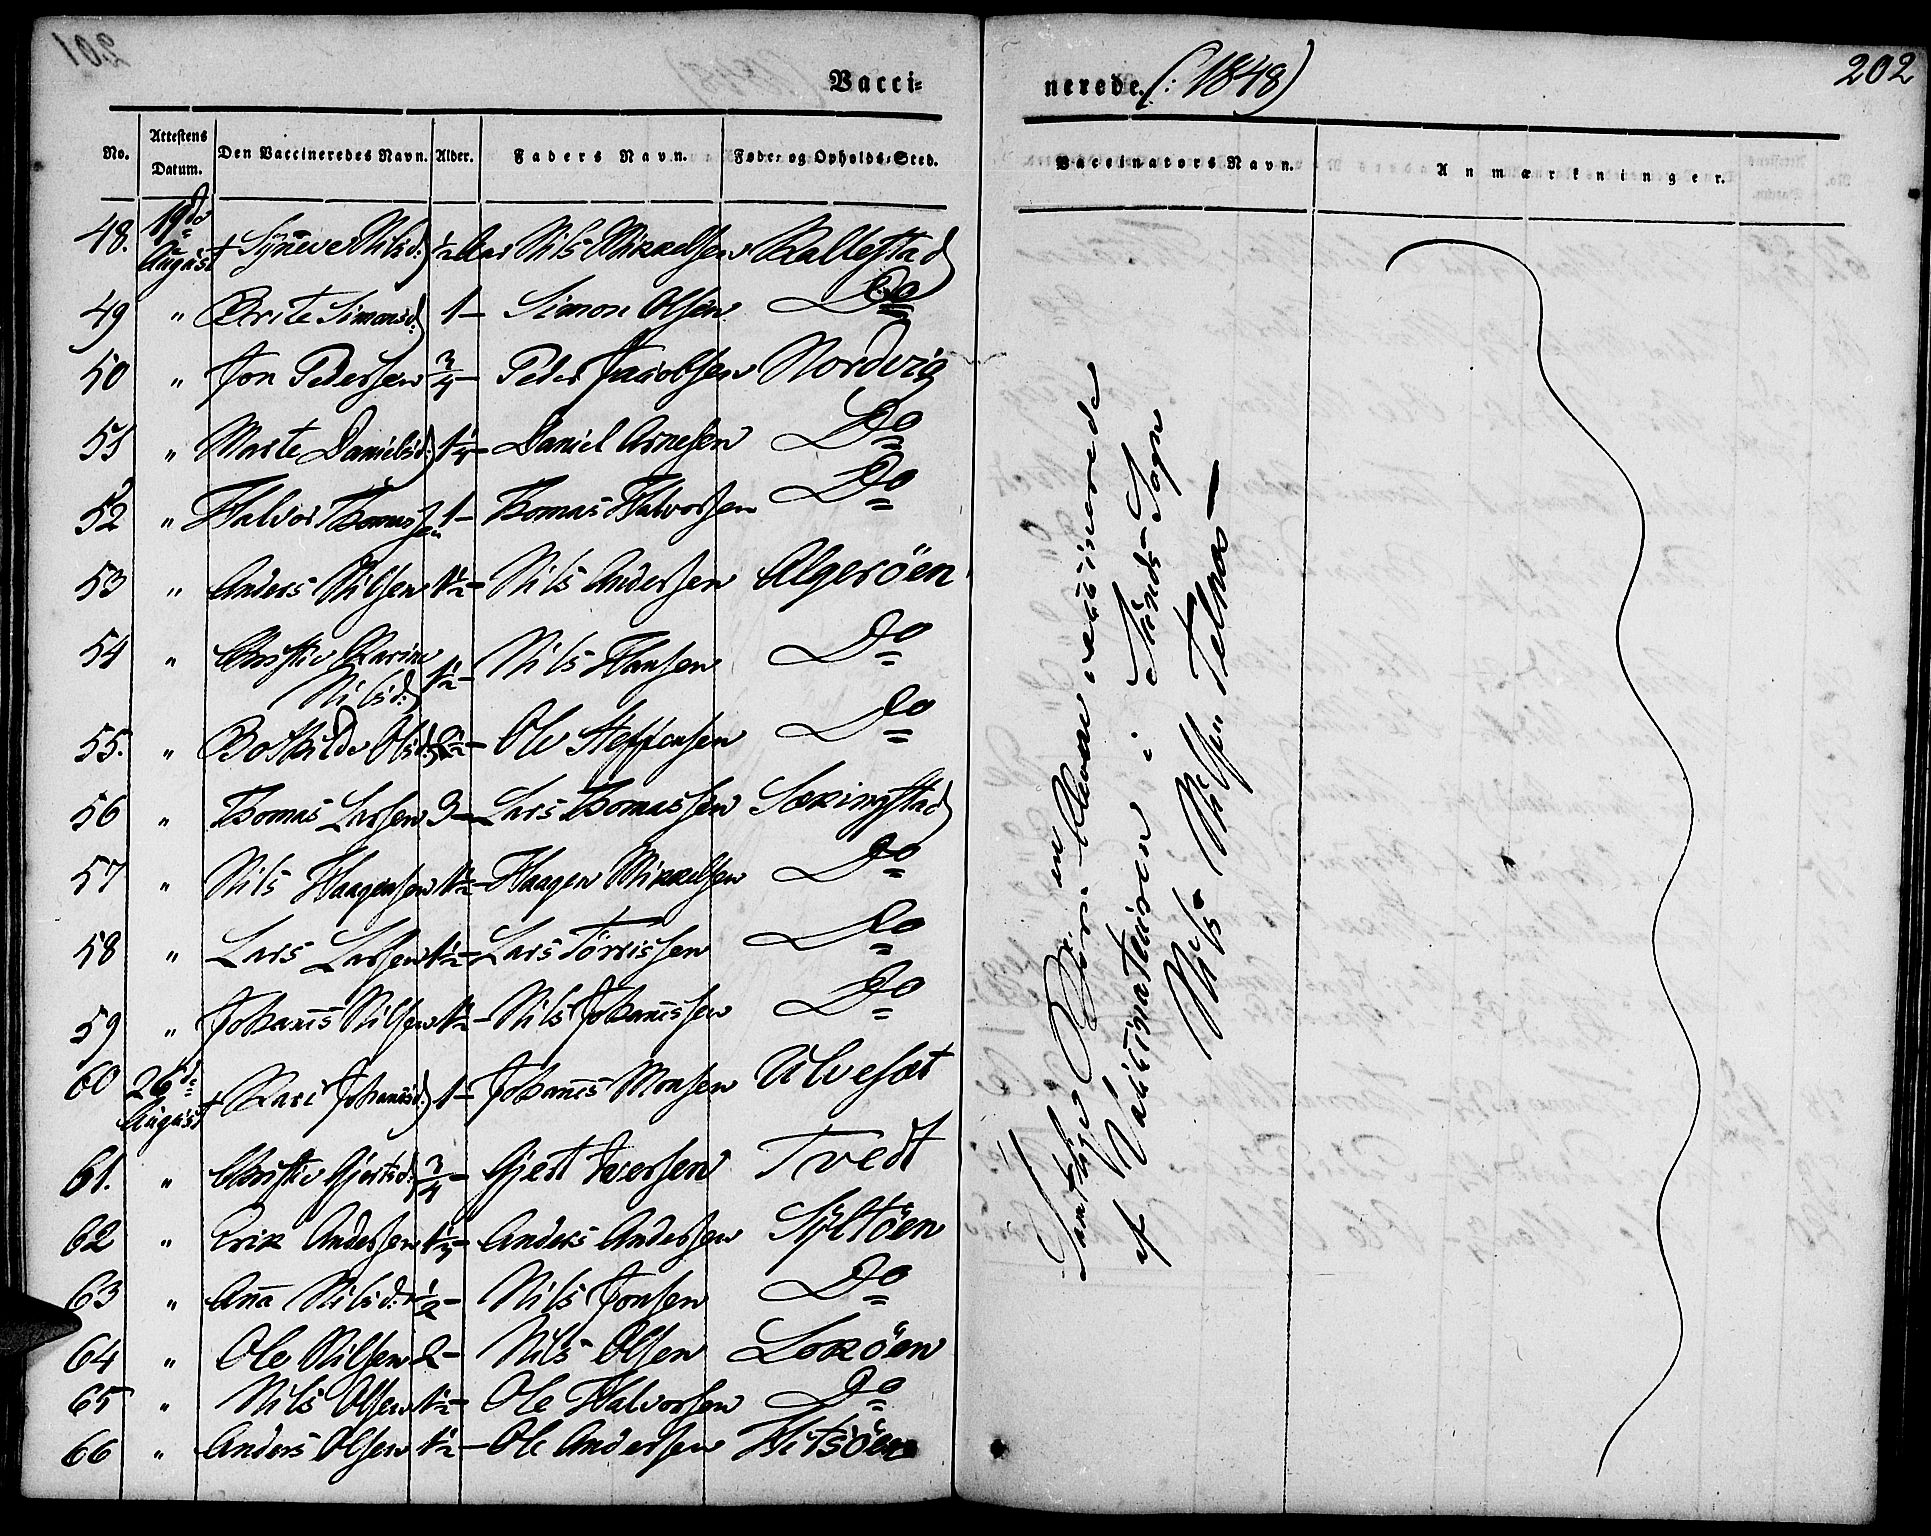 201
Vacci-
nerede. (: 1848)
202
No.
Attestens Datum.
Den Vaccineredes Navn.
Alder.
Faders Navn.
Føde- og Opholds-Sted.
Vaccinators Navn.
Anmærkninger.
48. 19de August + Synneve Nilsd: ½ Aar Nils Mikkelsen Kallestad
49 " Brite Simonsd: 1 – Simon Olsen Do
50 " Jon Pedersen ¾ – Peder Jacobsen Nordvig
51 " Marte Danielsd: 1¼ – Daniel Arnesen Do
52 " Halvor Thomassen 1 – Thomas Halvorsen Do
53 " Anders Nilsen 1½ – Nils Andersen Algerøen
54 " Christie Karine Nilsd: 1½ – Nils Hansen Do
55. " Bothilde Olsd: 2½ – Ole Steffensen Do
56 " Thomas Larsen 3 – Lars Thomassen Sækingstad
57 " Nils Haagensen 1½ – Haagen Mikkelsen Do
58 " Lars Larsen 1½ – Lars Tørrissen Do
59 " Johans Nilsen 1½ – Nils Johansen Do
60 26de August + Kari Johansd: 1 – Johans Monsen Ulvesæt
61. " Christie Gjertsd: ¾ – Gjert Iversen Tvedt
62 " Erik Andersen 1¼ – Anders Andersen Syltøen
63 " Anna Nilsd: 1½ – Nils Jonsen Do
64 " Ole Nilsen 2 – Nils Olsen Lokøen
65 " Nils Olsen 1½ – Ole Halvorsen Do
66 " Anders Olsen 1½ – Ole Andersen Hitsøen
Samtlige Børn ere bleven vakcinerede
af Vakcinateuren i Sunds-Sogn
Nils Nilsen Telnæs –